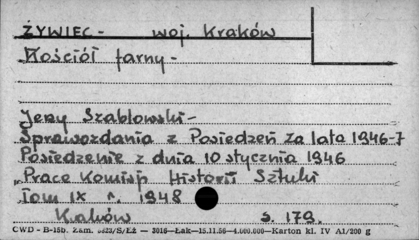 ŻYWIEC - woj. Kraków
Kościół farny -
Jerzy Szablowski -
Sprawozdania z Posiedzeń za lata 1946-7
Posiedzenie z dnia 10 stycznia 1946
„Prace Komisji Historii Sztuki
Tom IX r. 1948
Kraków s. 179.
CWD - B-15b. Zam. 6823/S/ŁŻ — 3016—Łak—15.11.56—4.000.000—Karton kl. IV A1/200 g